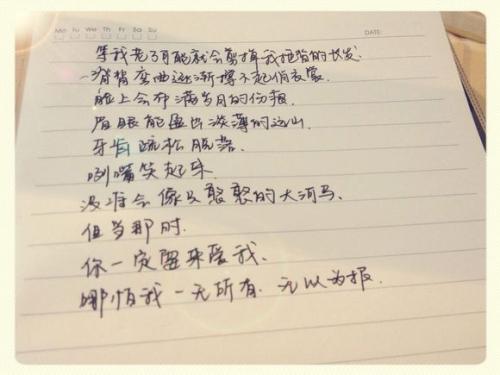 Mo Tu We Th Fr Sa Su
DATE:
等我老了可能就会剪掉我的长发.
脊背弯曲逐渐撑不起俏衣裳.
脸上会布满岁月的伤痕.
眉眼能画出淡薄的远山.
牙齿疏松脱落.
咧嘴笑起来.
没准会像只憨憨的大河马.
但当那时.
你一定要来爱我.
哪怕我一无所有.无以为报.